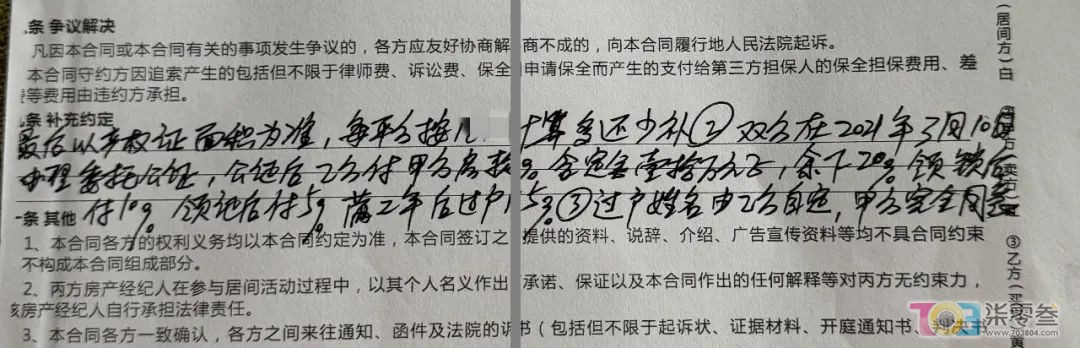 条 争议解决
凡因本合同或本合同有关的事项发生争议的，各方应友好协商解 商不成的，向本合同履行地人民法院起诉。
本合同守约方因追索产生的包括但不限于律师费、诉讼费、保全 申请保全而产生的支付给第三方担保人的保全担保费用、差
等费用由违约方承担。
条 补充约定
最后以产权证面积为准，每平方按 计算多还少补② 双方在2021年3月10日
办理委托公证，公证后乙方付甲方房款 % 含定金壹拾万元正，余下20% 领锁后
付10% 领证后付5% 满二年后过户 5% ③过户姓名由乙方自定，甲方完全同意
条 其他
1、本合同各方的权利义务均以本合同约定为准，本合同签订之 提供的资料、说辞、介绍、广告宣传资料等均不具合同约束
不构成本合同组成部分。
2、丙方房产经纪人在参与居间活动过程中，以其个人名义作出 承诺、保证以及本合同作出的任何解释等对丙方无约束力，
该房产经纪人自行承担法律责任。
3、本合同各方一致确认，各方之间来往通知、函件及法院的诉 书（包括但不限于起诉状、证据材料、开庭通知书、判决书
（居间方）白
卖方
③乙方（买 黄
703
柒零叁
www.703804.com